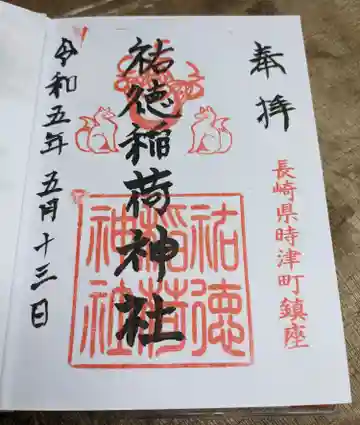 奉拝
長崎県時津町鎮座
祐徳稲荷神社
祐徳
稲荷
神社
令和五年五月十三日